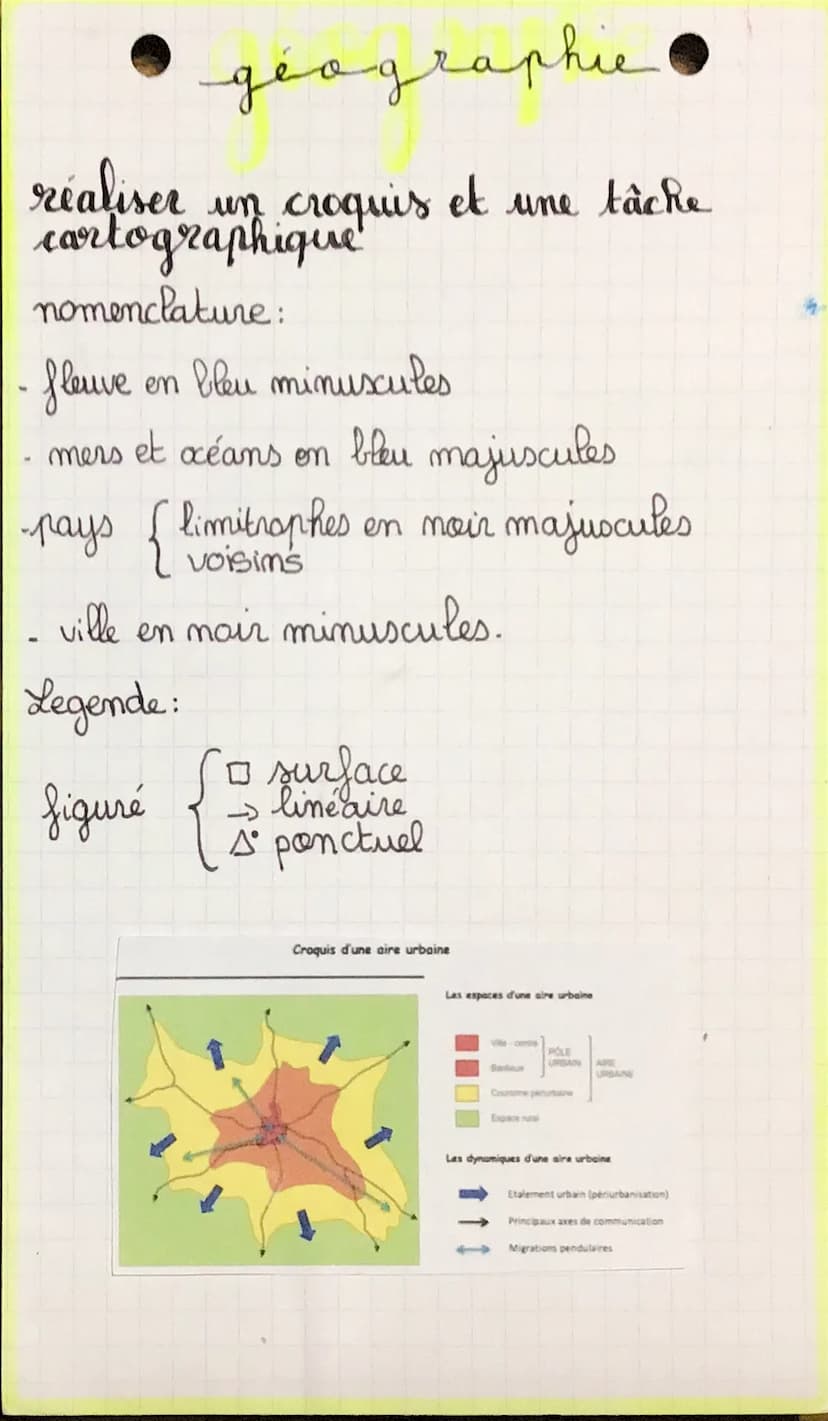 géographie
réaliser un croquis et une tâche
cartographique
nomenclature :
- fleuve en bleu minuscules
- mers et océans en bleu majuscules
- pays { limitrophes en noir majuscules
voisins
- ville en noir minuscules.
Legende :
figuré { □ surface
→ linéaire
△° ponctuel
Croquis d'une aire urbaine
Les espaces d'une aire urbaine
Ville - centre
PÔLE
URBAIN
AIRE
URBAINE
Banlieue
Couronne périurbaine
Espace rural
Les dynamiques d'une aire urbaine
Etalement urbain (périurbanisation)
Principaux axes de communication
Migrations pendulaires